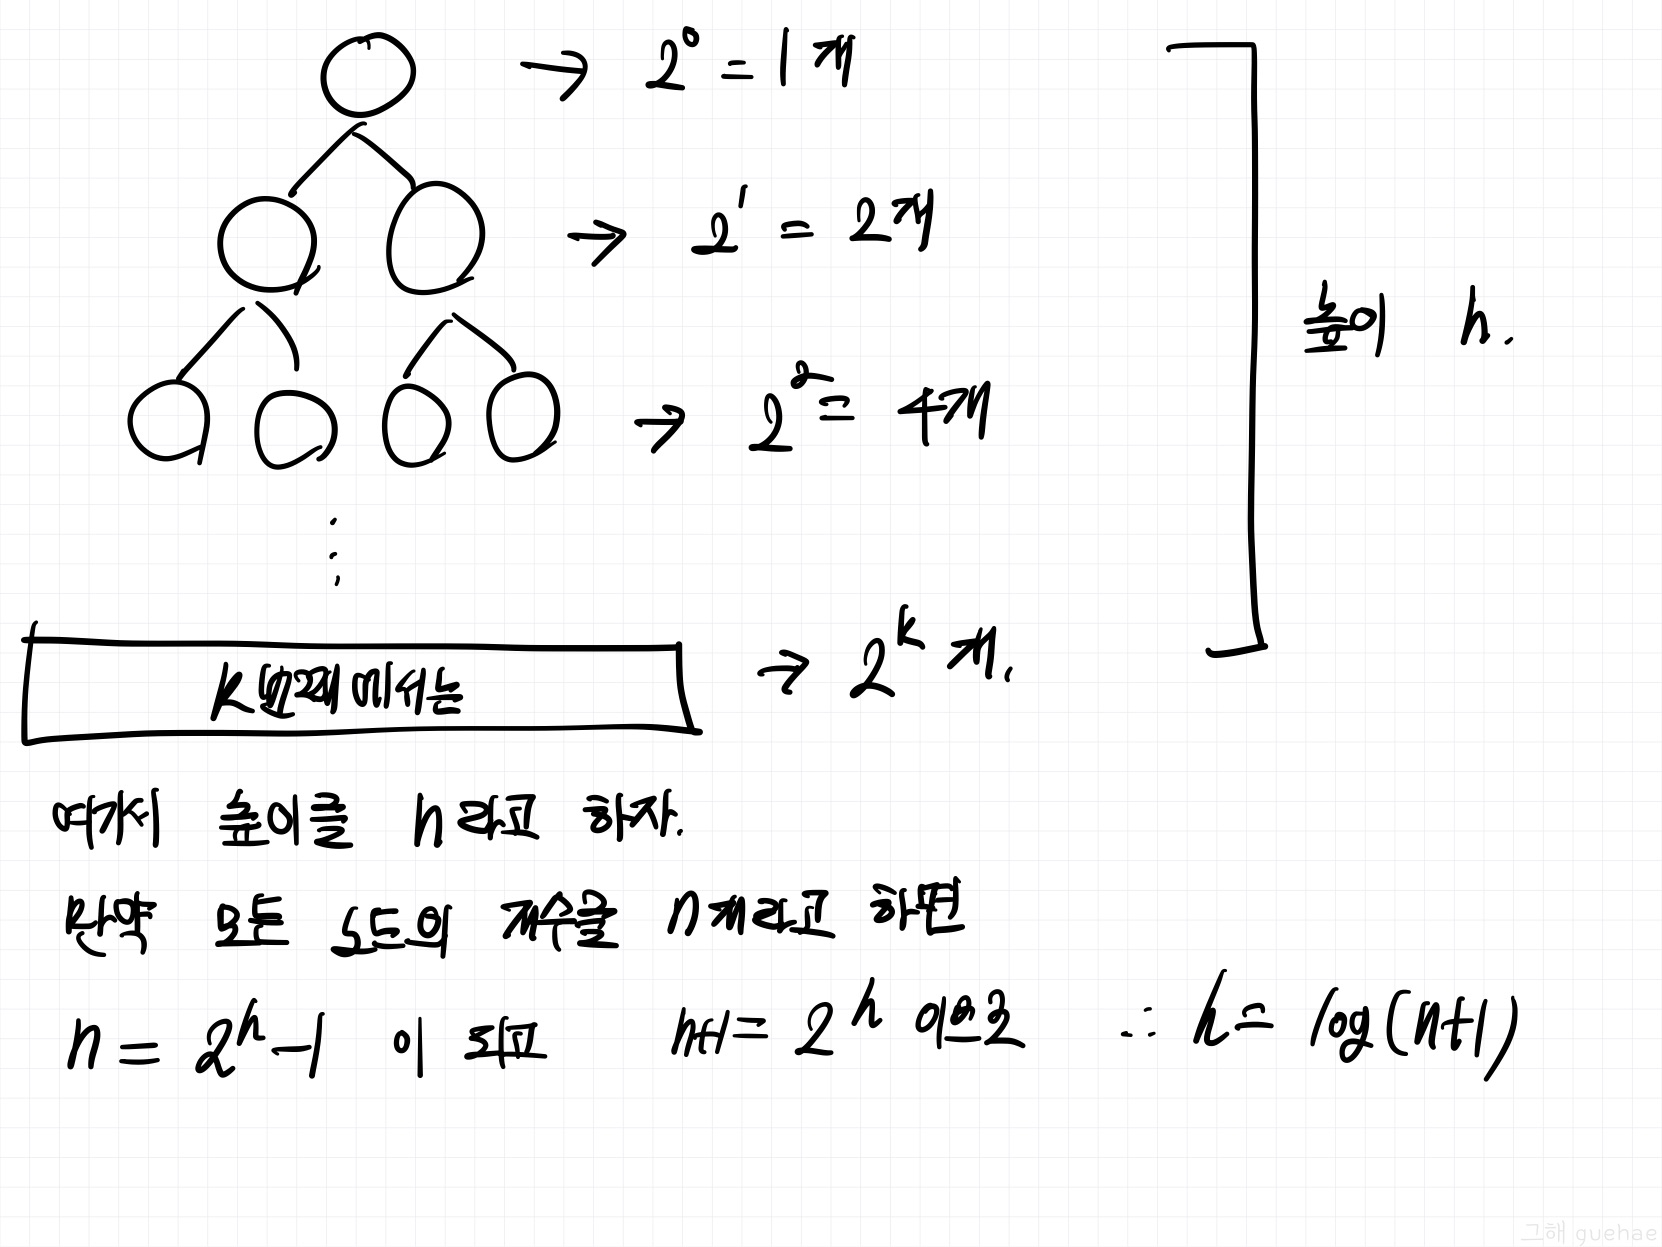 → 2⁰ = 1개
→ 2¹ = 2개
→ 2² = 4개
높이 h.
⋮
K번째에서는 → 2ᵏ개.
여기서 높이를 h라고 하자.
만약 모든 노드의 개수를 n개라고 하면
n = 2ʰ-1 이 되고 n+1 = 2ʰ 이므로 ∴ h = log(n+1)
그해 guehae